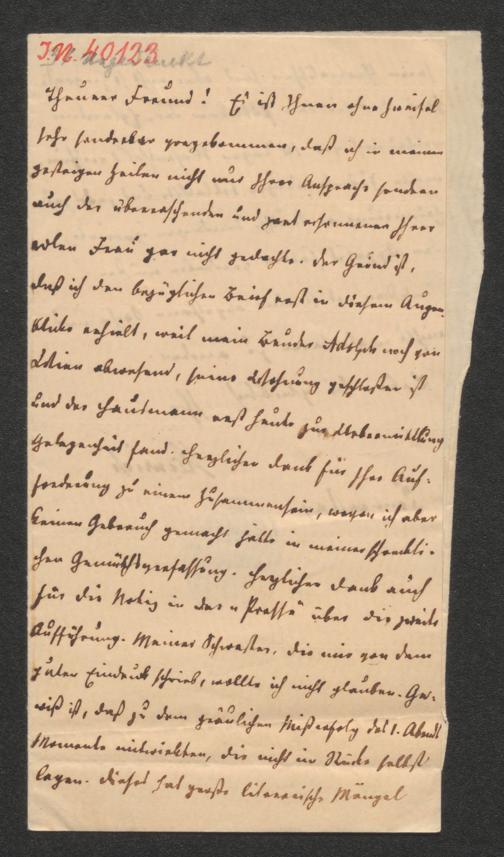 I.N. 40123
Ungedruckt
Theurer Freund! Es ist Ihnen ohne Zweifel
sehr sonderbar vorgekommen, daß ich in meinen
gestrigen Zeilen nicht nur Ihrer Ansprache sondern
auch der überraschenden und zart ersonnenen Ihrer
edlen Frau gar nicht gedachte. Der Grund ist,
daß ich den bezüglichen Brief erst in diesem Augen-
blicke erhielt, weil mein Bruder Adolph noch von
Wien abwesend, seine Wohnung geschlossen ist
und der Hausmann erst heute zur Uebermittlung
Gelegenheit fand. Herzlichen Dank für Ihre Auf-
forderung zu einem Zusammensein, wovon ich aber
keinen Gebrauch gemacht hätte in meiner schreckli-
chen Gemüthsverfassung. Herzlichen Dank auch
für die Notiz in der "Presse" über die zweite
Aufführung. Meiner Schwester, die mir von dem
guten Eindruck schrieb, wollte ich nicht glauben. Ge-
wiß ist, daß zu dem gräulichen Mißerfolg des 1. Abends
Momente mitwirkten, die nicht im Stücke selbst
lagen. Dieses hat große literarische Mängel